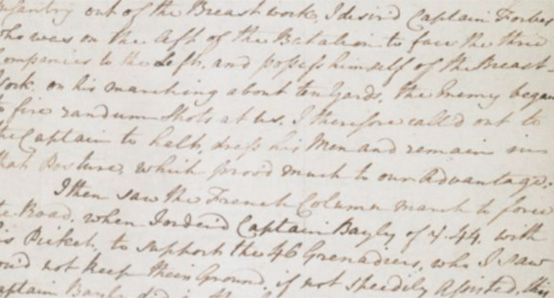 out of the Breast work, I desired Captain Forbes
who was on the left of the Batalion to face the three
Companies to the Left, and possess himself of the Breast
Work. on his marching about ten Yards, the Enemy began
to fire randum Shots at us, I therefore call'd out to
the Captain to halt, dress his Men and remain in
that Posture, which prov'd much to our Advantage.
I then saw the French Column march to force
the Road, when I orderd Captain Bayly of ye 44. with
his Picket, to Support the 46 Grenadiers, who I saw
could not keep their Ground, if not speedily assisted, this
Captain Bayly did